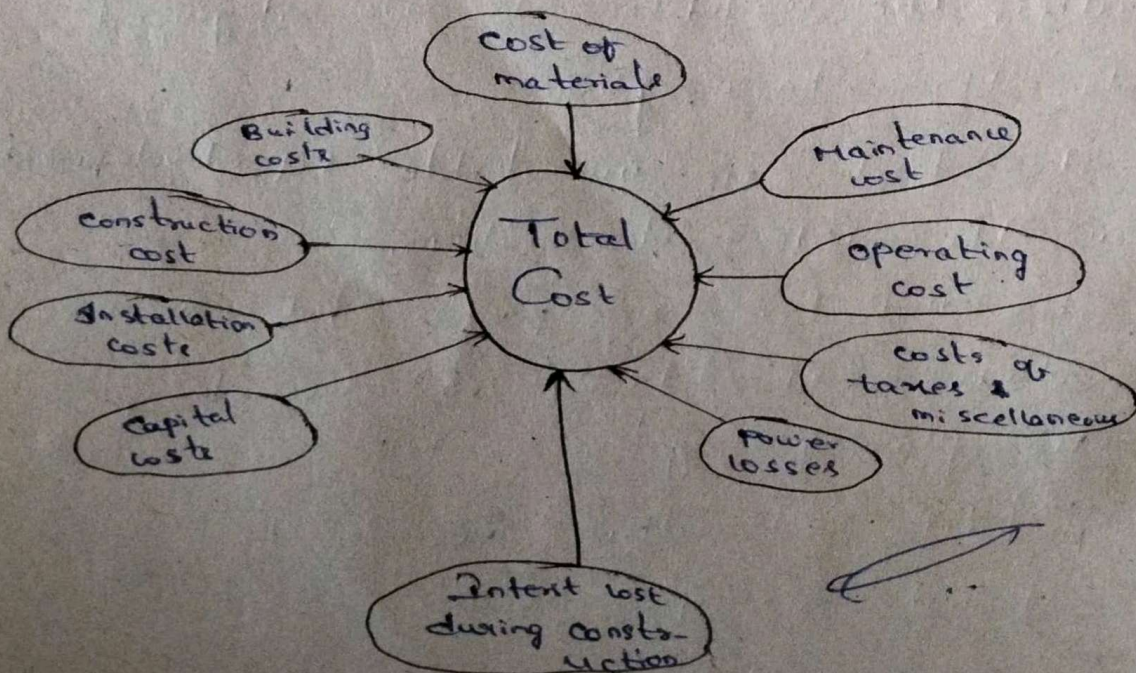 Cost of
materials
Building
costs
Maintenance
cost
Construction
cost
Total
Cost
Operating
cost
Installation
costs
Costs of
taxes &
miscellaneous
Capital
costs
Power
losses
Interst cost
during constr-
uction